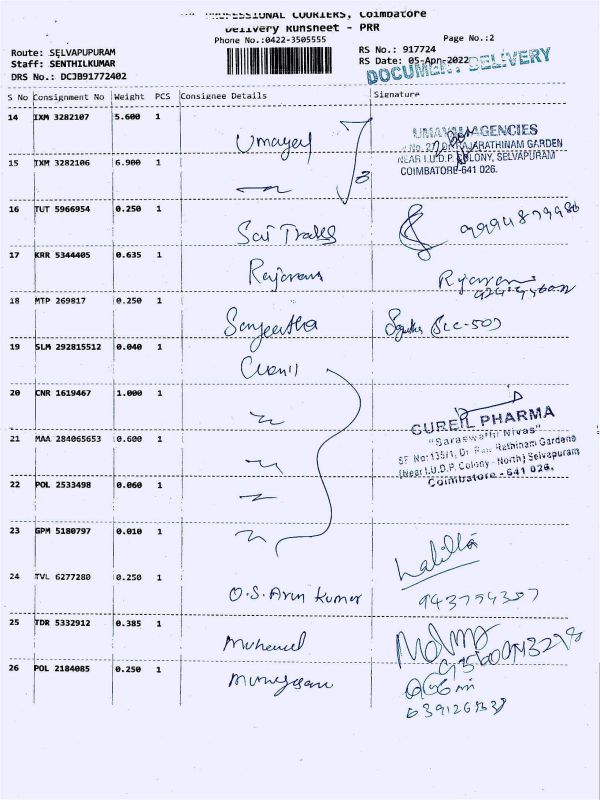 PROFESSIONAL COURIERS, Coimbatore
Delivery Runsheet - PRR
Phone No.:0422-3505555
Page No.:2
Route: SELVAPUPURAM
Staff: SENTHILKUMAR
DRS No.: DCJB91772402
RS No.: 917724
RS Date: 05-Apr-2022
DOCUMENT DELIVERY
S No Consignment No Weight PCS Consignee Details Signature
14 IXM 3282107 5.600 1 Umayal
UMAYAL AGENCIES
RAJARATHINAM GARDEN
NEAR I.U.D.P. COLONY, SELVAPURAM
COIMBATORE-641 026.
15 IXM 3282106 6.900 1
16 TUT 5966954 0.250 1 Sai Trades
17 KRR 5344405 0.635 1 Rajaram
18 MTP 269817 0.250 1 Sangeetha
19 SLM 292815512 0.040 1
20 CNR 1619467 1.000 1
CUREIL PHARMA
"Saraswathi Nivas"
SF No:135/1, Dr. Rathinam Gardens
(Near I.U.D.P. Colony - North) Selvapuram
Coimbatore - 641 026.
21 MAA 284065653 0.600 1
22 POL 2533498 0.060 1
23 GPM 5180797 0.010 1
24 TVL 6277280 0.250 1 O.S. Arun Kumar Lalitha
25 TDR 5332912 0.385 1
26 POL 2184085 0.250 1